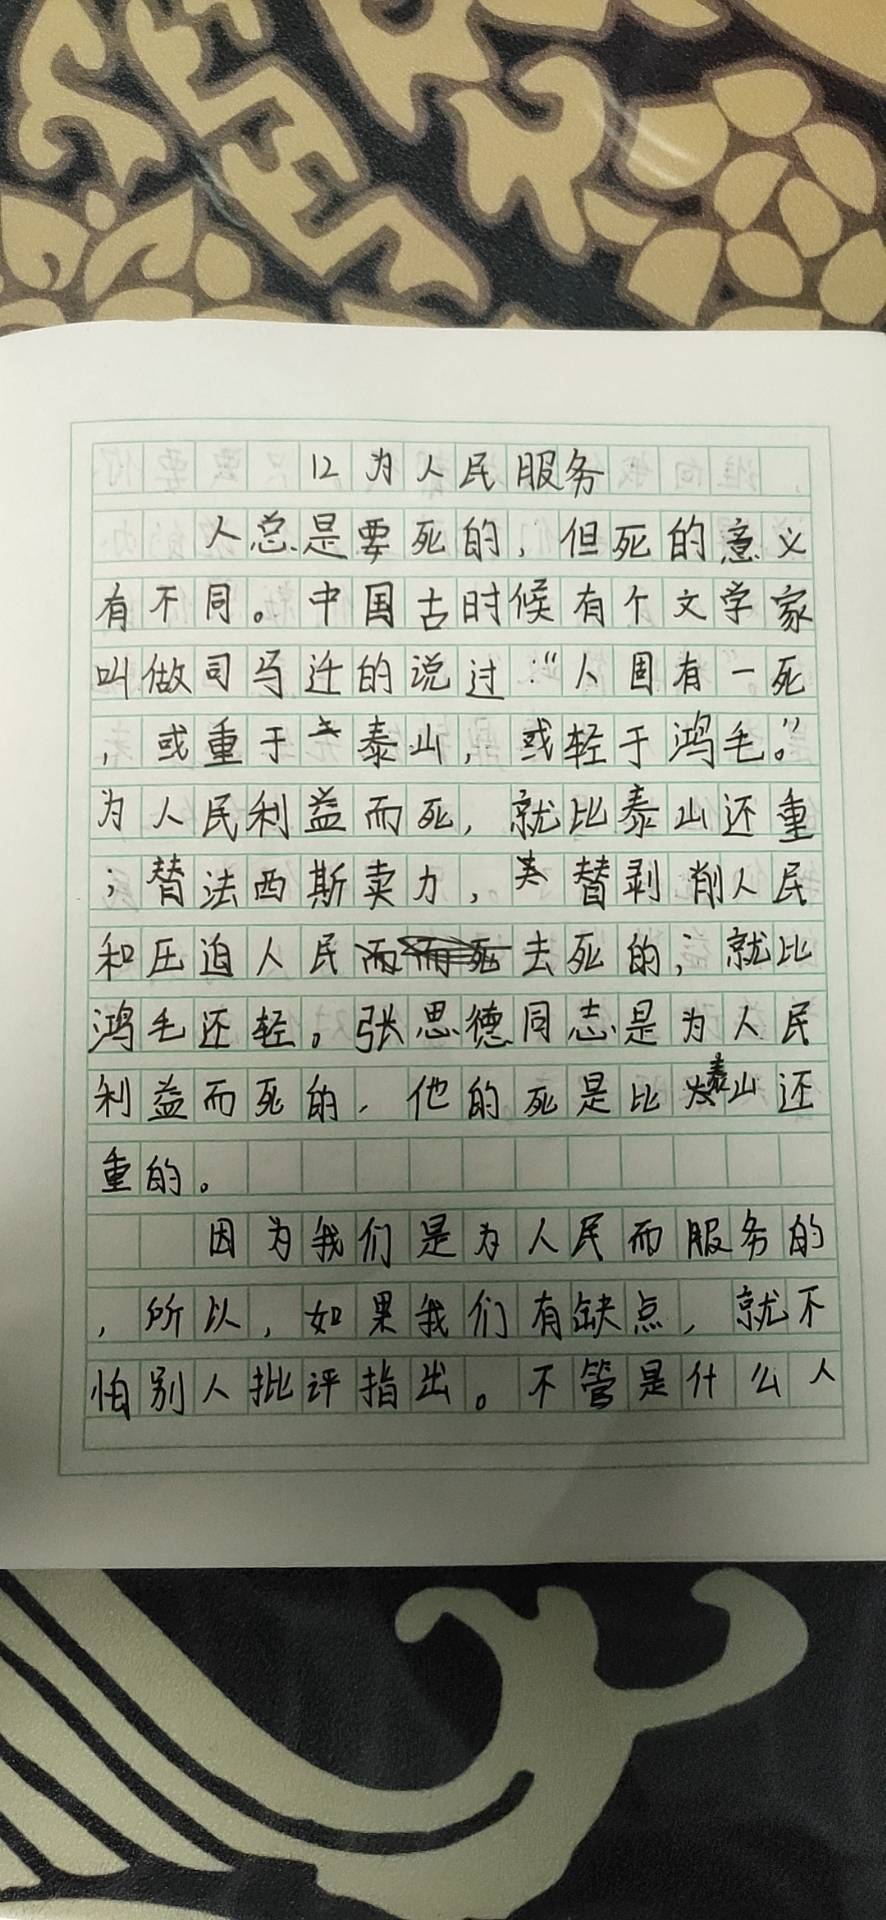 12为人民服务
人总是要死的，但死的意义
有不同。中国古时候有个文学家
叫做司马迁的说过：“人固有一死
，或重于泰山，或轻于鸿毛。”
为人民利益而死，就比泰山还重
；替法西斯卖力，替剥削人民
和压迫人民去死的，就比
鸿毛还轻。张思德同志是为人民
利益而死的，他的死是比泰山还
重的。
因为我们是为人民而服务的
，所以，如果我们有缺点，就不
怕别人批评指出。不管是什么人